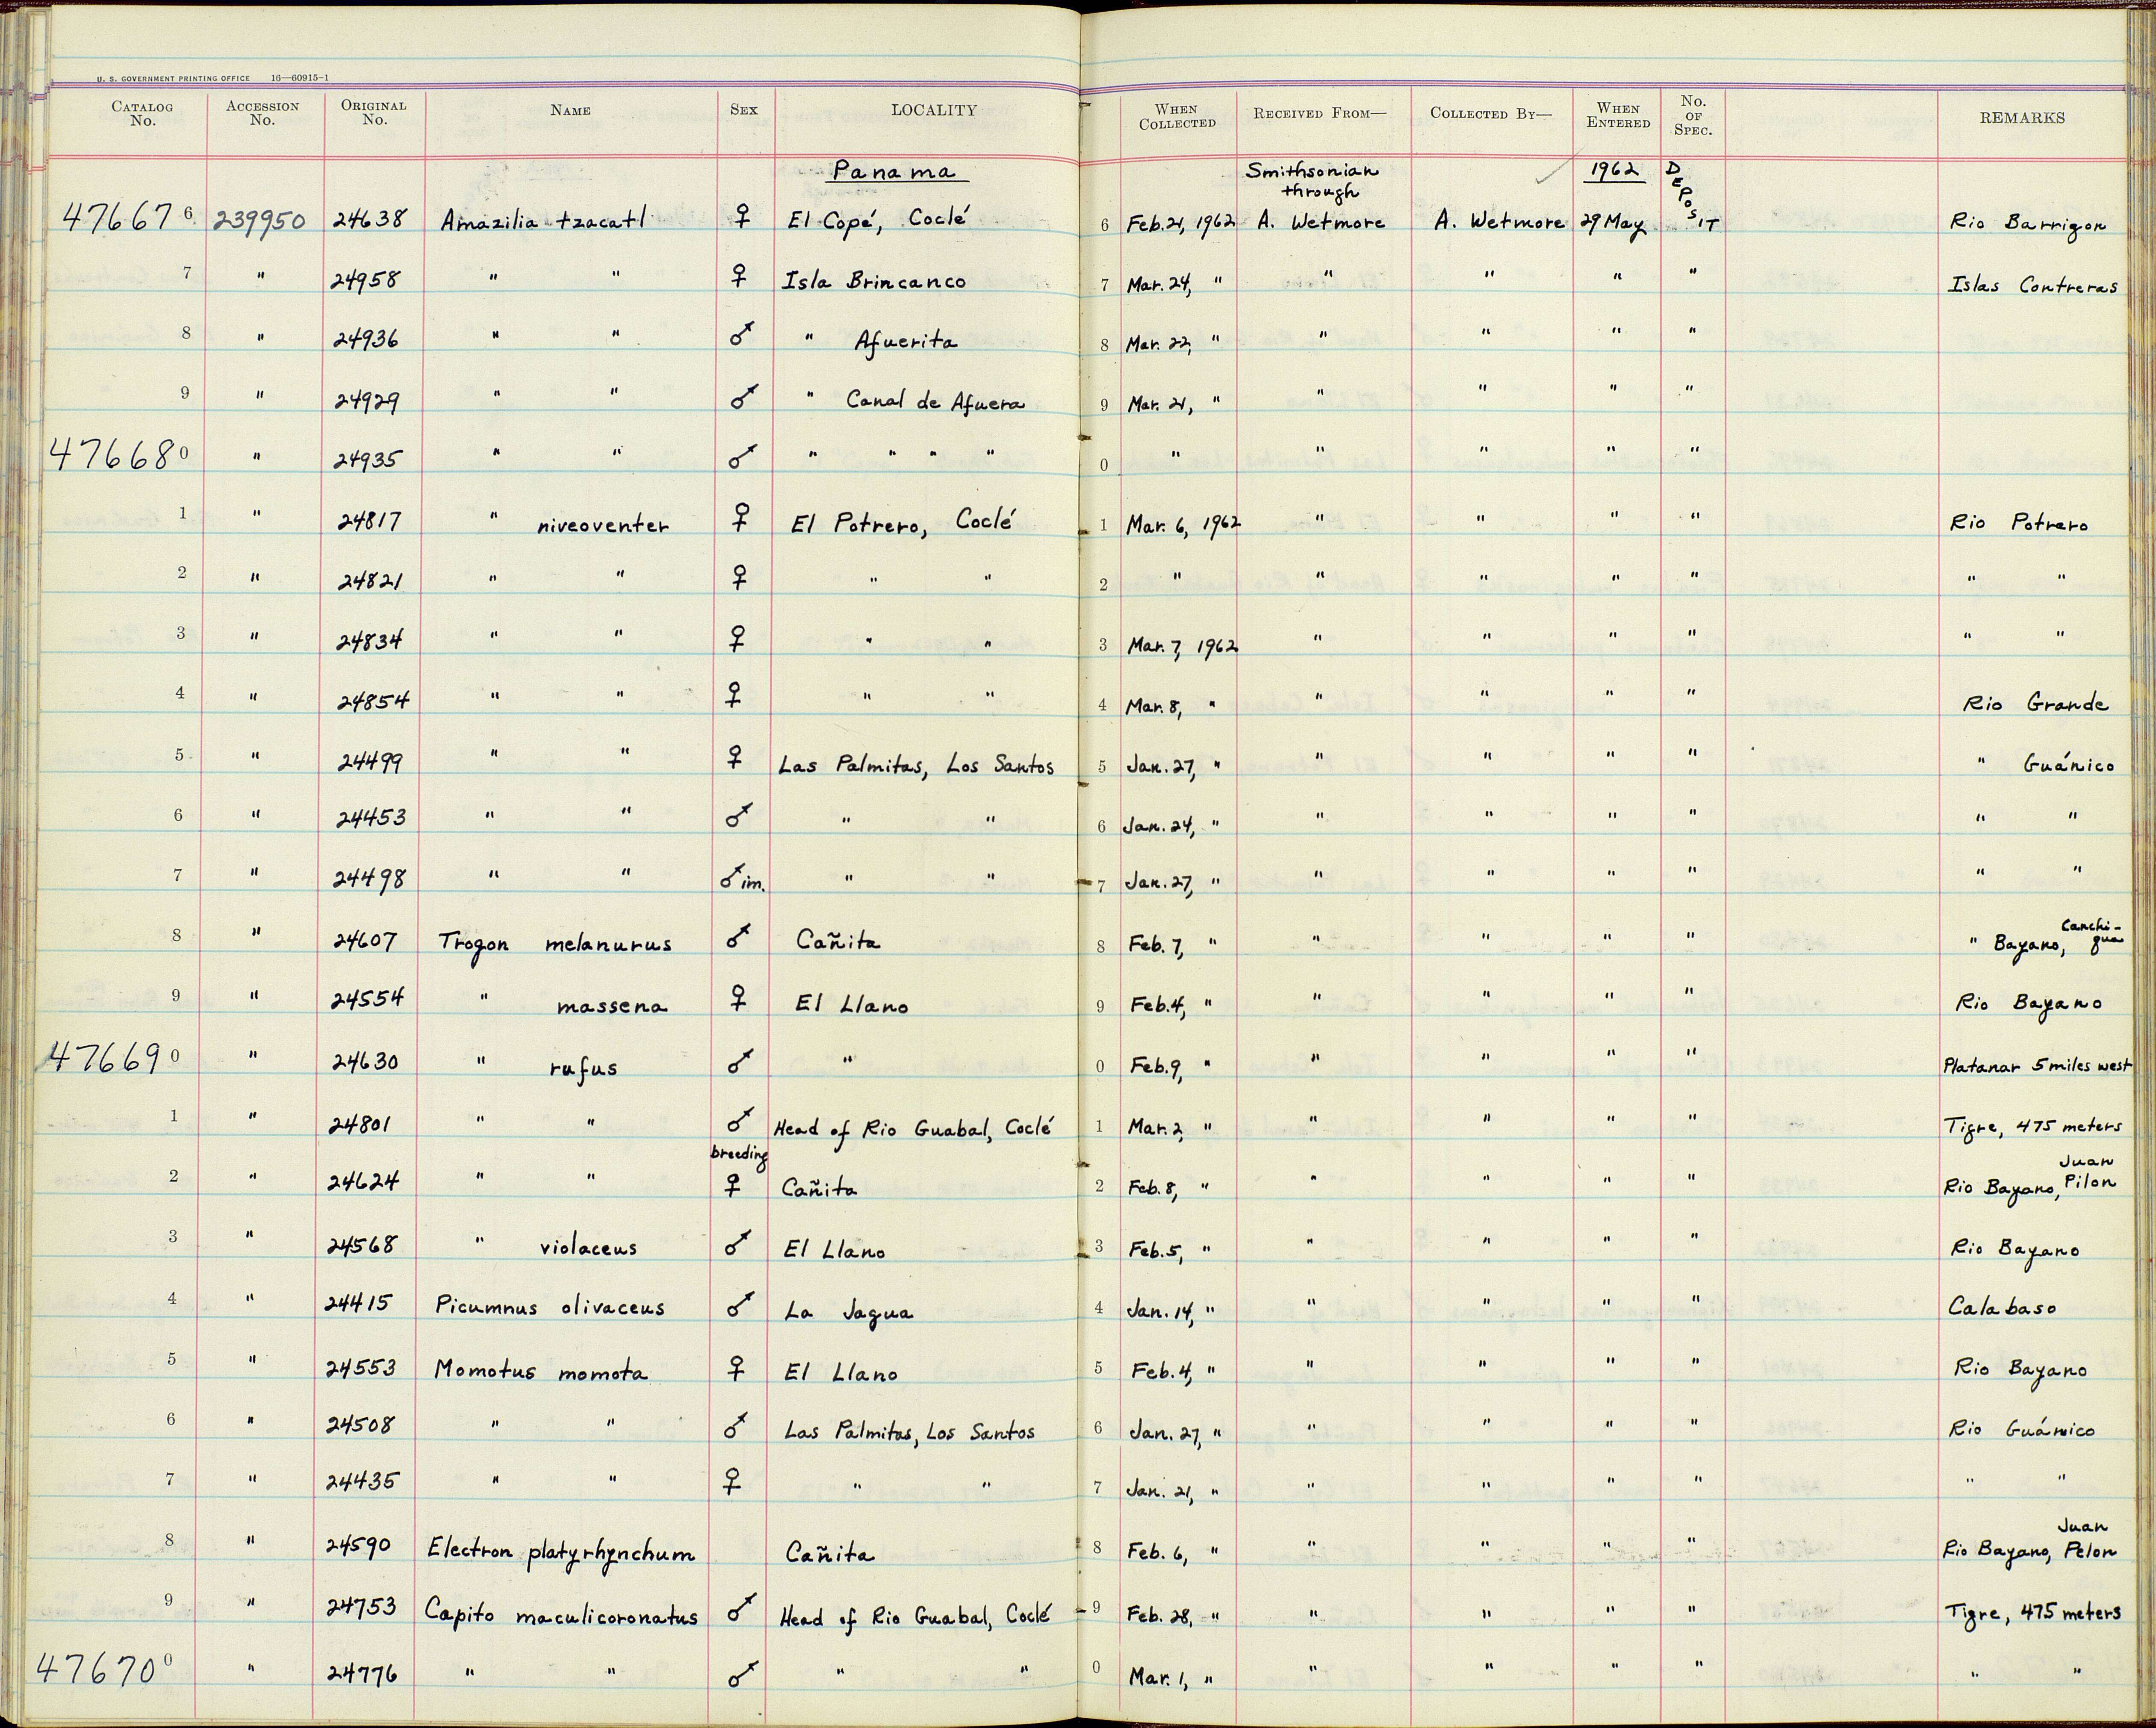 U. S. GOVERNMENT PRINTING OFFICE 16—60915-1
CATALOG No. ACCESSION No. ORIGINAL No. NAME SEX LOCALITY WHEN COLLECTED RECEIVED FROM— COLLECTED BY— WHEN ENTERED No. OF SPEC. REMARKS
Panama Smithsonian through 1962 DEPOSIT
476676 239950 24638 Amazilia tzacatl ♀ El Copé, Coclé 6 Feb. 21, 1962 A. Wetmore A. Wetmore 29 May Rio Barrigon
7 " 24958 " " ♀ Isla Brincanco 7 Mar. 24, " " " " " Islas Contreras
8 " 24936 " " ♂ " Afuerita 8 Mar. 22, " " " " "
9 " 24929 " " ♂ " Canal de Afuera 9 Mar. 21, " " " " "
476680 " 24935 " " ♂ " " " " 0 " " " " "
1 " 24817 " niveoventer ♀ El Potrero, Coclé 1 Mar. 6, 1962 " " " " Rio Potrero
2 " 24821 " " ♀ " " 2 " " " " " " "
3 " 24834 " " ♀ " " 3 Mar. 7, 1962 " " " " " "
4 " 24854 " " ♀ " " 4 Mar. 8, " " " " " Rio Grande
5 " 24499 " " ♀ Las Palmitas, Los Santos 5 Jan. 27, " " " " " " Guánico
6 " 24453 " " ♂ " " 6 Jan. 24, " " " " " " "
7 " 24498 " " ♂ im. " " 7 Jan. 27, " " " " " " "
8 " 24607 Trogon melanurus ♂ Cañita 8 Feb. 7, " " " " " " Bayano, Canchi-gua
9 " 24554 " massena ♀ El Llano 9 Feb. 4, " " " " " Rio Bayano
476690 " 24630 " rufus ♂ " 0 Feb. 9, " " " " " Platanar 5 miles west
1 " 24801 " " ♂ breeding Head of Rio Guabal, Coclé 1 Mar. 2, " " " " " Tigre, 475 meters
2 " 24624 " " ♀ Cañita 2 Feb. 8, " " " " " Rio Bayano, Juan Pilon
3 " 24568 " violaceus ♂ El Llano 3 Feb. 5, " " " " " Rio Bayano
4 " 24415 Picumnus olivaceus ♂ La Jagua 4 Jan. 14, " " " " " Calabaso
5 " 24553 Momotus momota ♀ El Llano 5 Feb. 4, " " " " " Rio Bayano
6 " 24508 " " ♂ Las Palmitas, Los Santos 6 Jan. 27, " " " " " Rio Guánico
7 " 24435 " " ♀ " " 7 Jan. 21, " " " " " " "
8 " 24590 Electron platyrhynchum Cañita 8 Feb. 6, " " " " " Rio Bayano, Juan Pelon
9 " 24753 Capito maculicoronatus ♂ Head of Rio Guabal, Coclé 9 Feb. 28, " " " " " Tigre, 475 meters
476700 " 24776 " " ♂ " " 0 Mar. 1, " " " " " " "